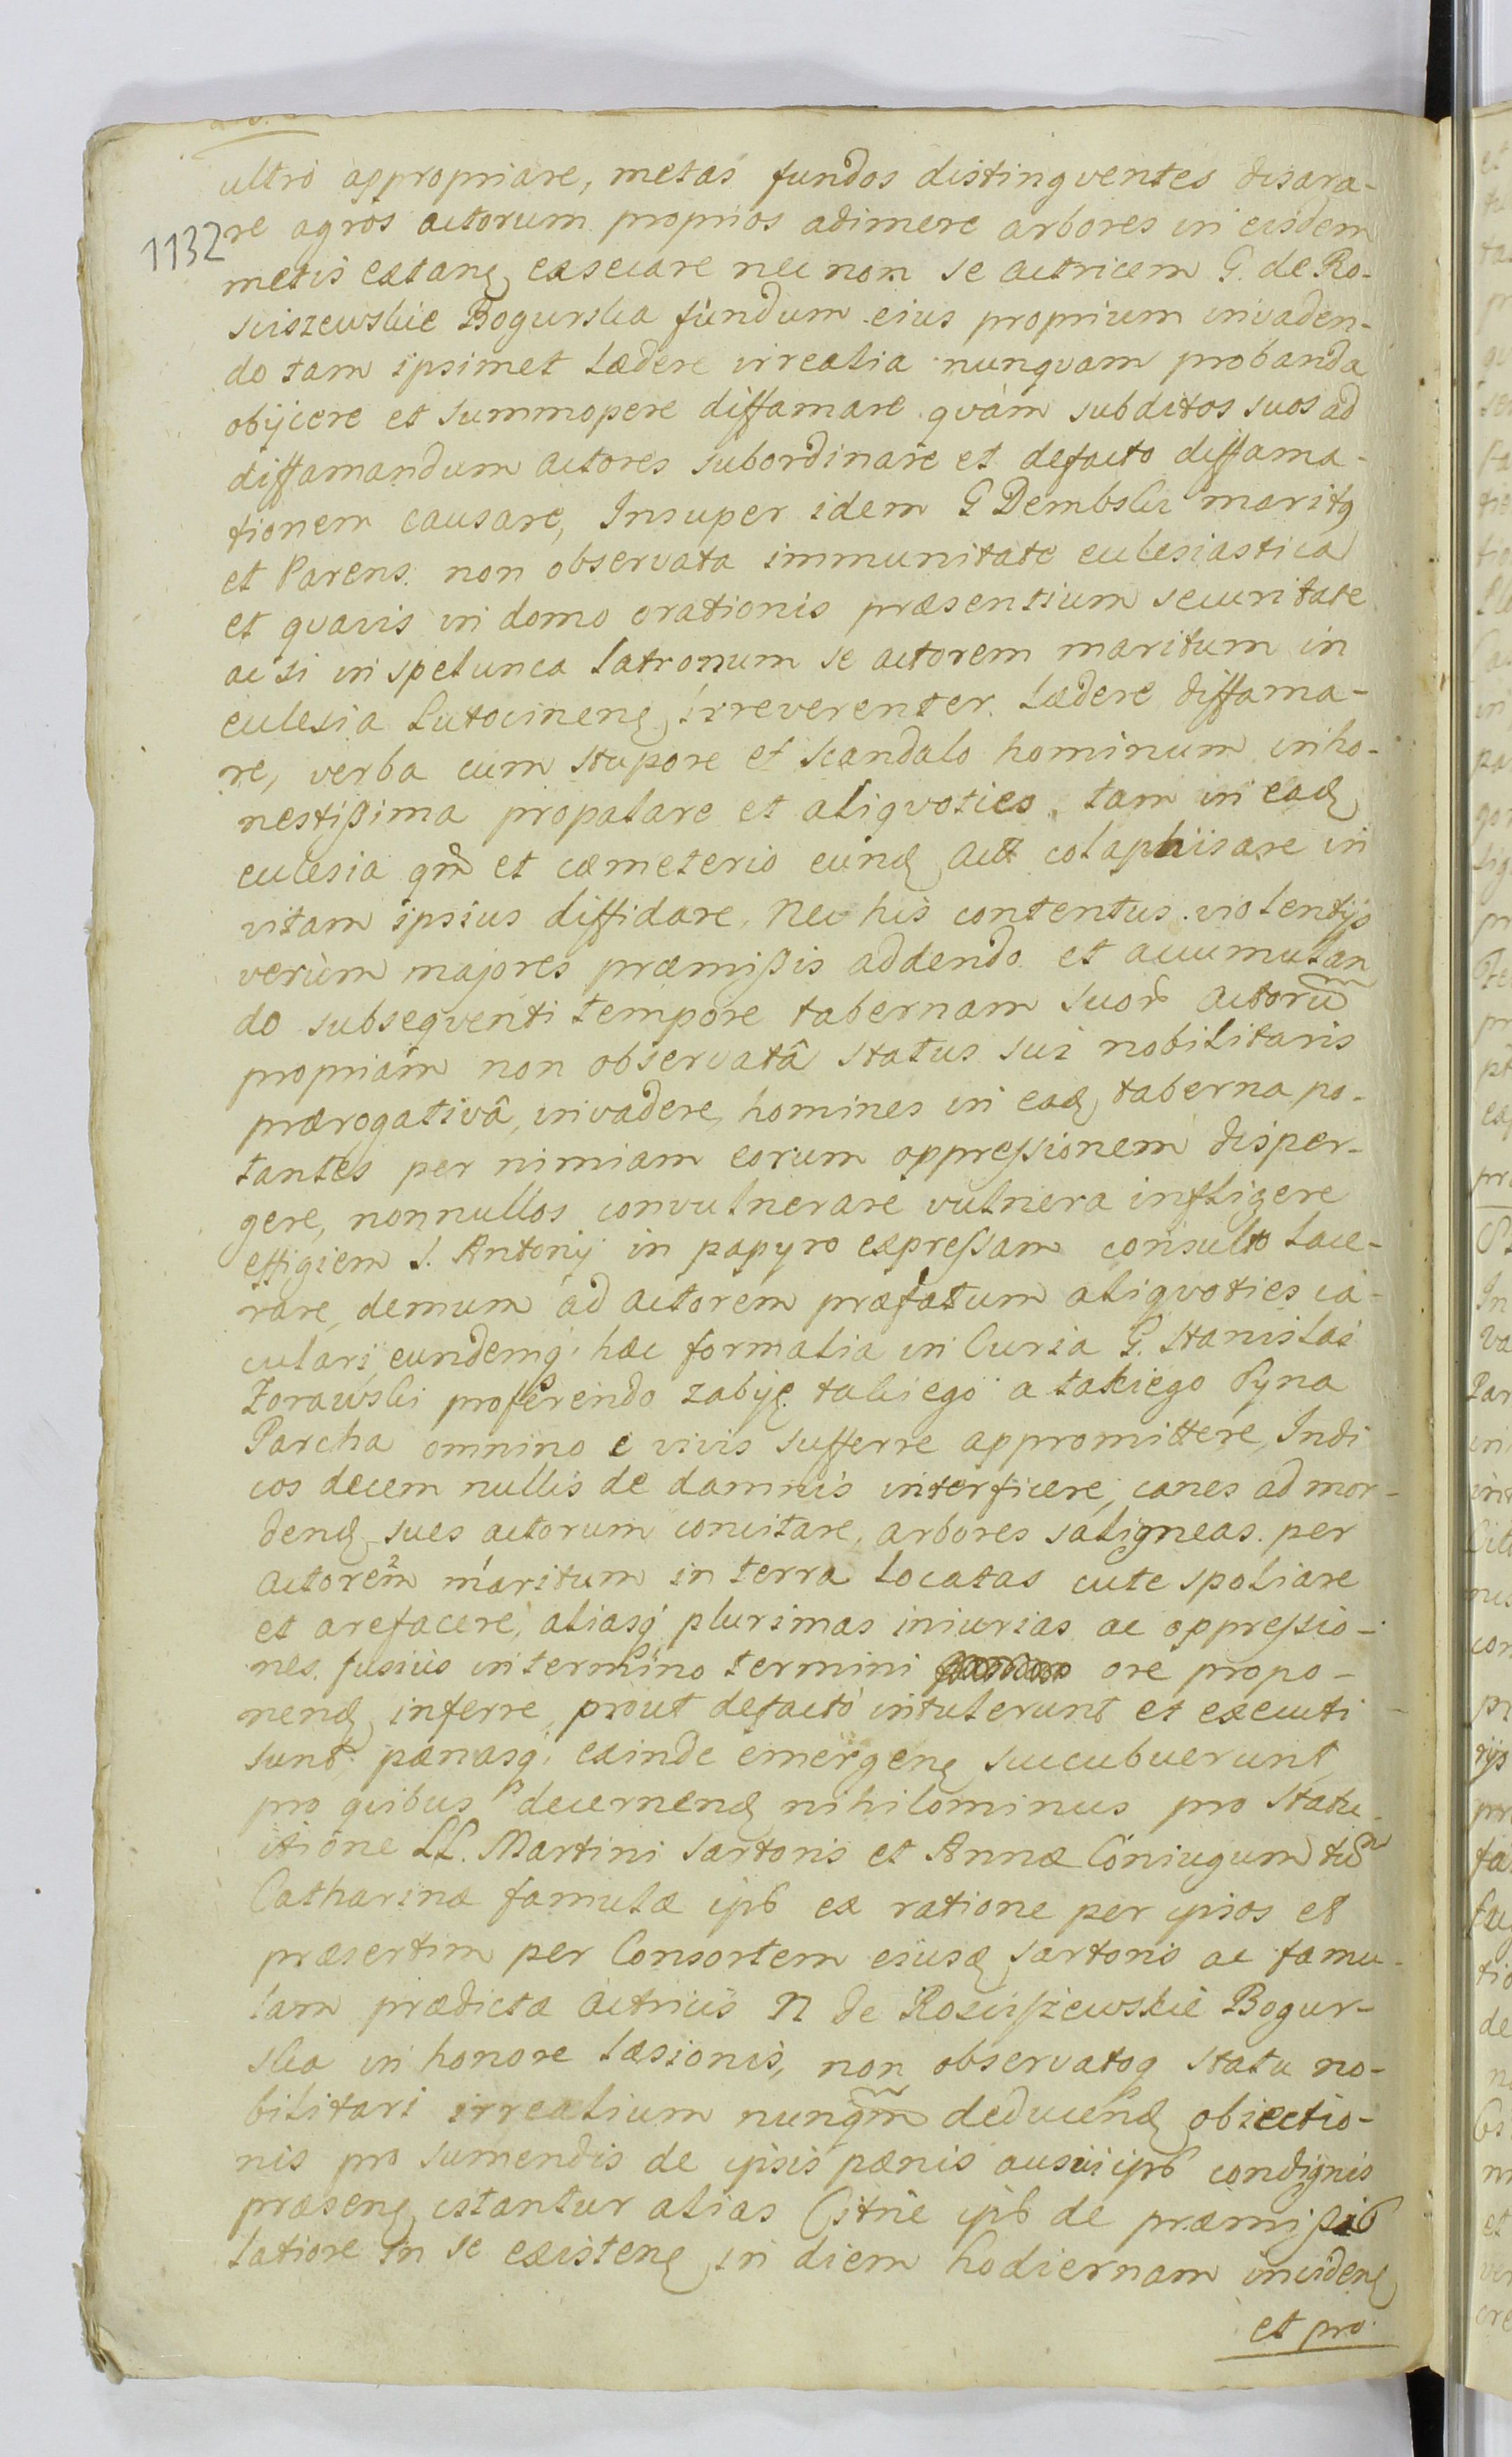 ultro appropriare, metas fundos distingventes disara-
1132
re agros actorum proprios adimere arbores in eisdem
metis extanę exsecare nec non se actricem G. de Ro-
sciszewskie Bogurska fundum eius proprium invaden-
do tam ipsimet lædere irrealia nunqvam probanda
obijcere et summopere diffamare qvàm subditos suos ad
diffamandum actores subordinare et defacto diffama-
tionem causare, Insuper idem G Dembski maritꝯ
et Parens non observata immunitate ecclesiastica
et qvavis in domo orationis præsentium securitate
ac si in spelunca latronum se actorem maritum in
ecclesia Lutocinenę irreverenter lædere diffama-
re, verba cum stupore et scandalo hominum inho-
nestißima propalare et aliqvoties tam in eadꝫ
ecclesia qm̃ et cæmeterio eundꝫ act colaphisare in
vitam ipsius diffidare, Nec his contentus violentijs
verùm majores præmißis addendo et accumulan
do subseqventi tempore tabernam suor̃ actorũ
propriam non observatâ status sui nobilitaris
prærogativâ, invadere, homines in eadꝫ taberna po-
tantes per nimiam eorum oppreſsionem disper-
gere, nonnullos convulnerare vulnera infligere
effigiem S. Antonij in papyro expreſsam consulto lace-
rare, demum ad actorem præfatum aliqvoties ia-
culari eundemq; hæc formalia in Curia G. Stanislai
Zorawski proferendo zabiję takiego a takiego Syna
Parcha omnino e vivis sufferre appromittere, Indi
cos decem nullis de damnis interficere, canes ad mor-
dendꝫ sues actorum concitare, arbores saligneas per
actorem maritum in terra locatas cute spoliare
et arefacere, aliasq; plurimas iniurias ac oppreſsio-
nes fusius in termino termini ore propo-
nendꝫ inferre, prout defacto intulerunt et executi
sunt pænasq; exinde emergenę succubuerunt
pro qvibus decernendꝫ nihilominus pro statu-
itione LL. Martini Sartoris et Annæ Coniugum tũ
Catharinæ famulæ ipb ex ratione per ipsos et
præsertim per Consortem eiusdꝫ sartoris ac famu-
lam prædictæ actricis N de Rosciſzewskie Bogur-
ska in honore læsionis, non observatoq statu no-
bilitari irrealium nunqm̃ deducendꝫ obiectio-
nis pro sumendis de ipsis pænis ausui ipb condignis
præsenę istantur alias Citñe ipb de præmißis
latiore in se existenę in diem hodiernam incidenę
et pro